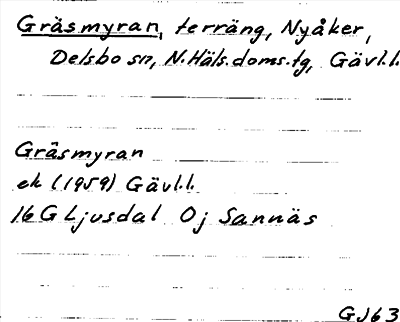 Gräsmyran, terräng, Nyåker,
Delsbo sn, N.Häls.doms.tg, Gävl.l.
Gräsmyran
ek (1959) Gävl.l.
16G Ljusdal 0j Sannäs
GJ63